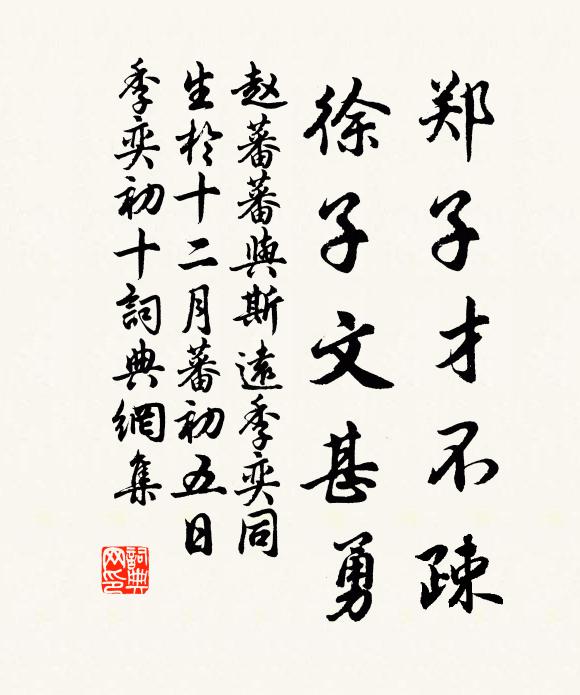 郑子才不疎
徐子文甚勇
赵蕃蕃與斯遠季奕同
生於十二月蕃初五日
季奕初十詞典網集
詞典网印